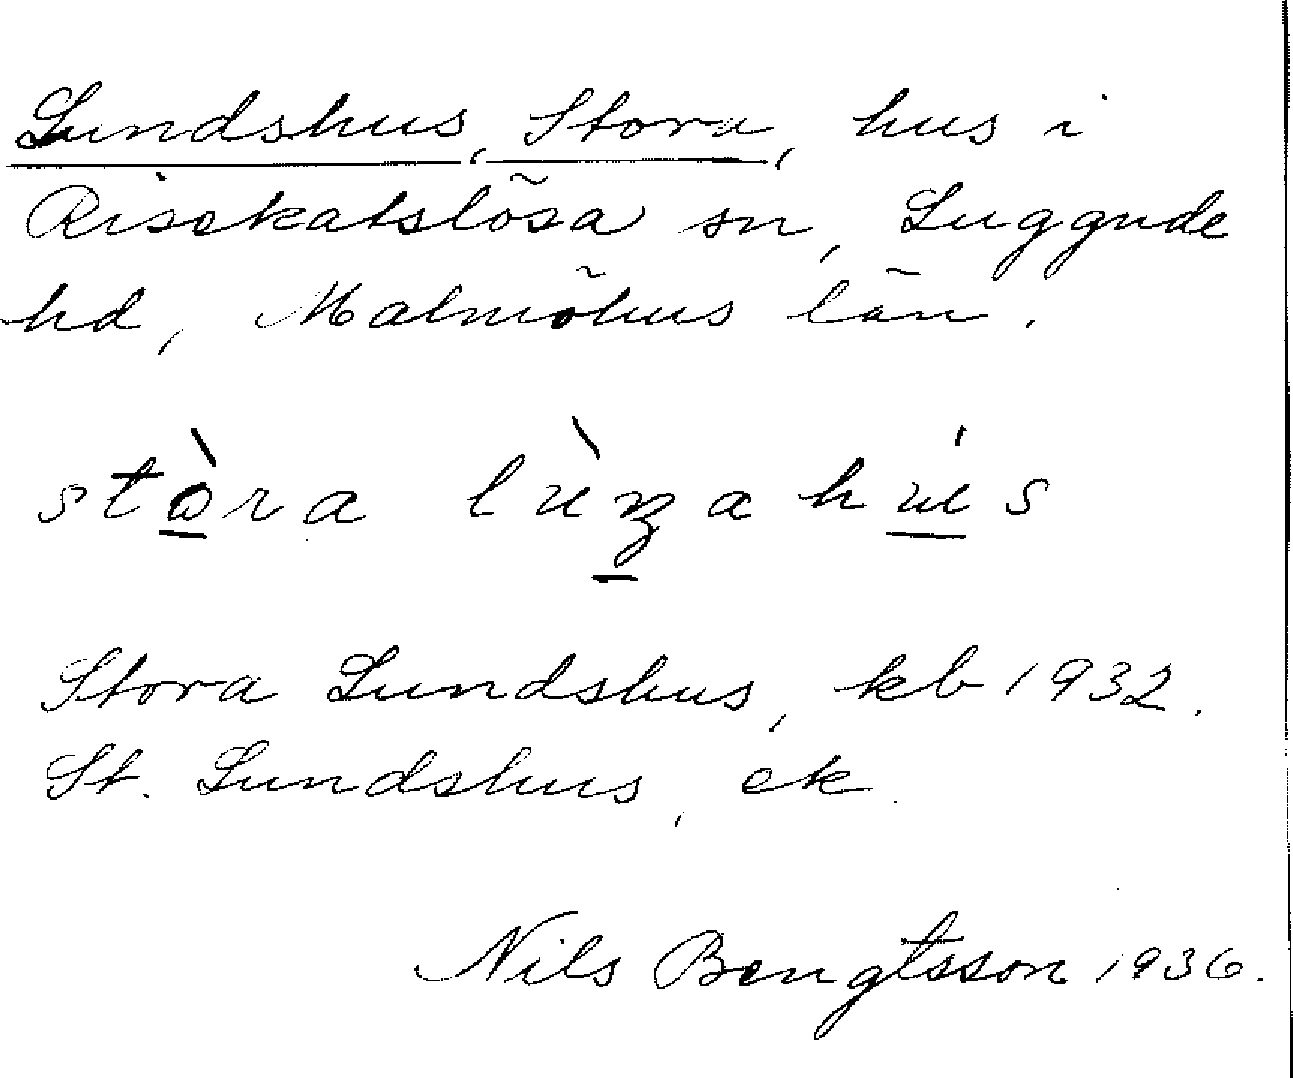 Lundshus, Stora, hus i
Risekatslösa sn, Luggude
hd, Malmöhus län.
stòra lùnahús
Stora Lundshus, kb 1932.
St. Lundshus, ek.
Nils Bengtsson 1936.